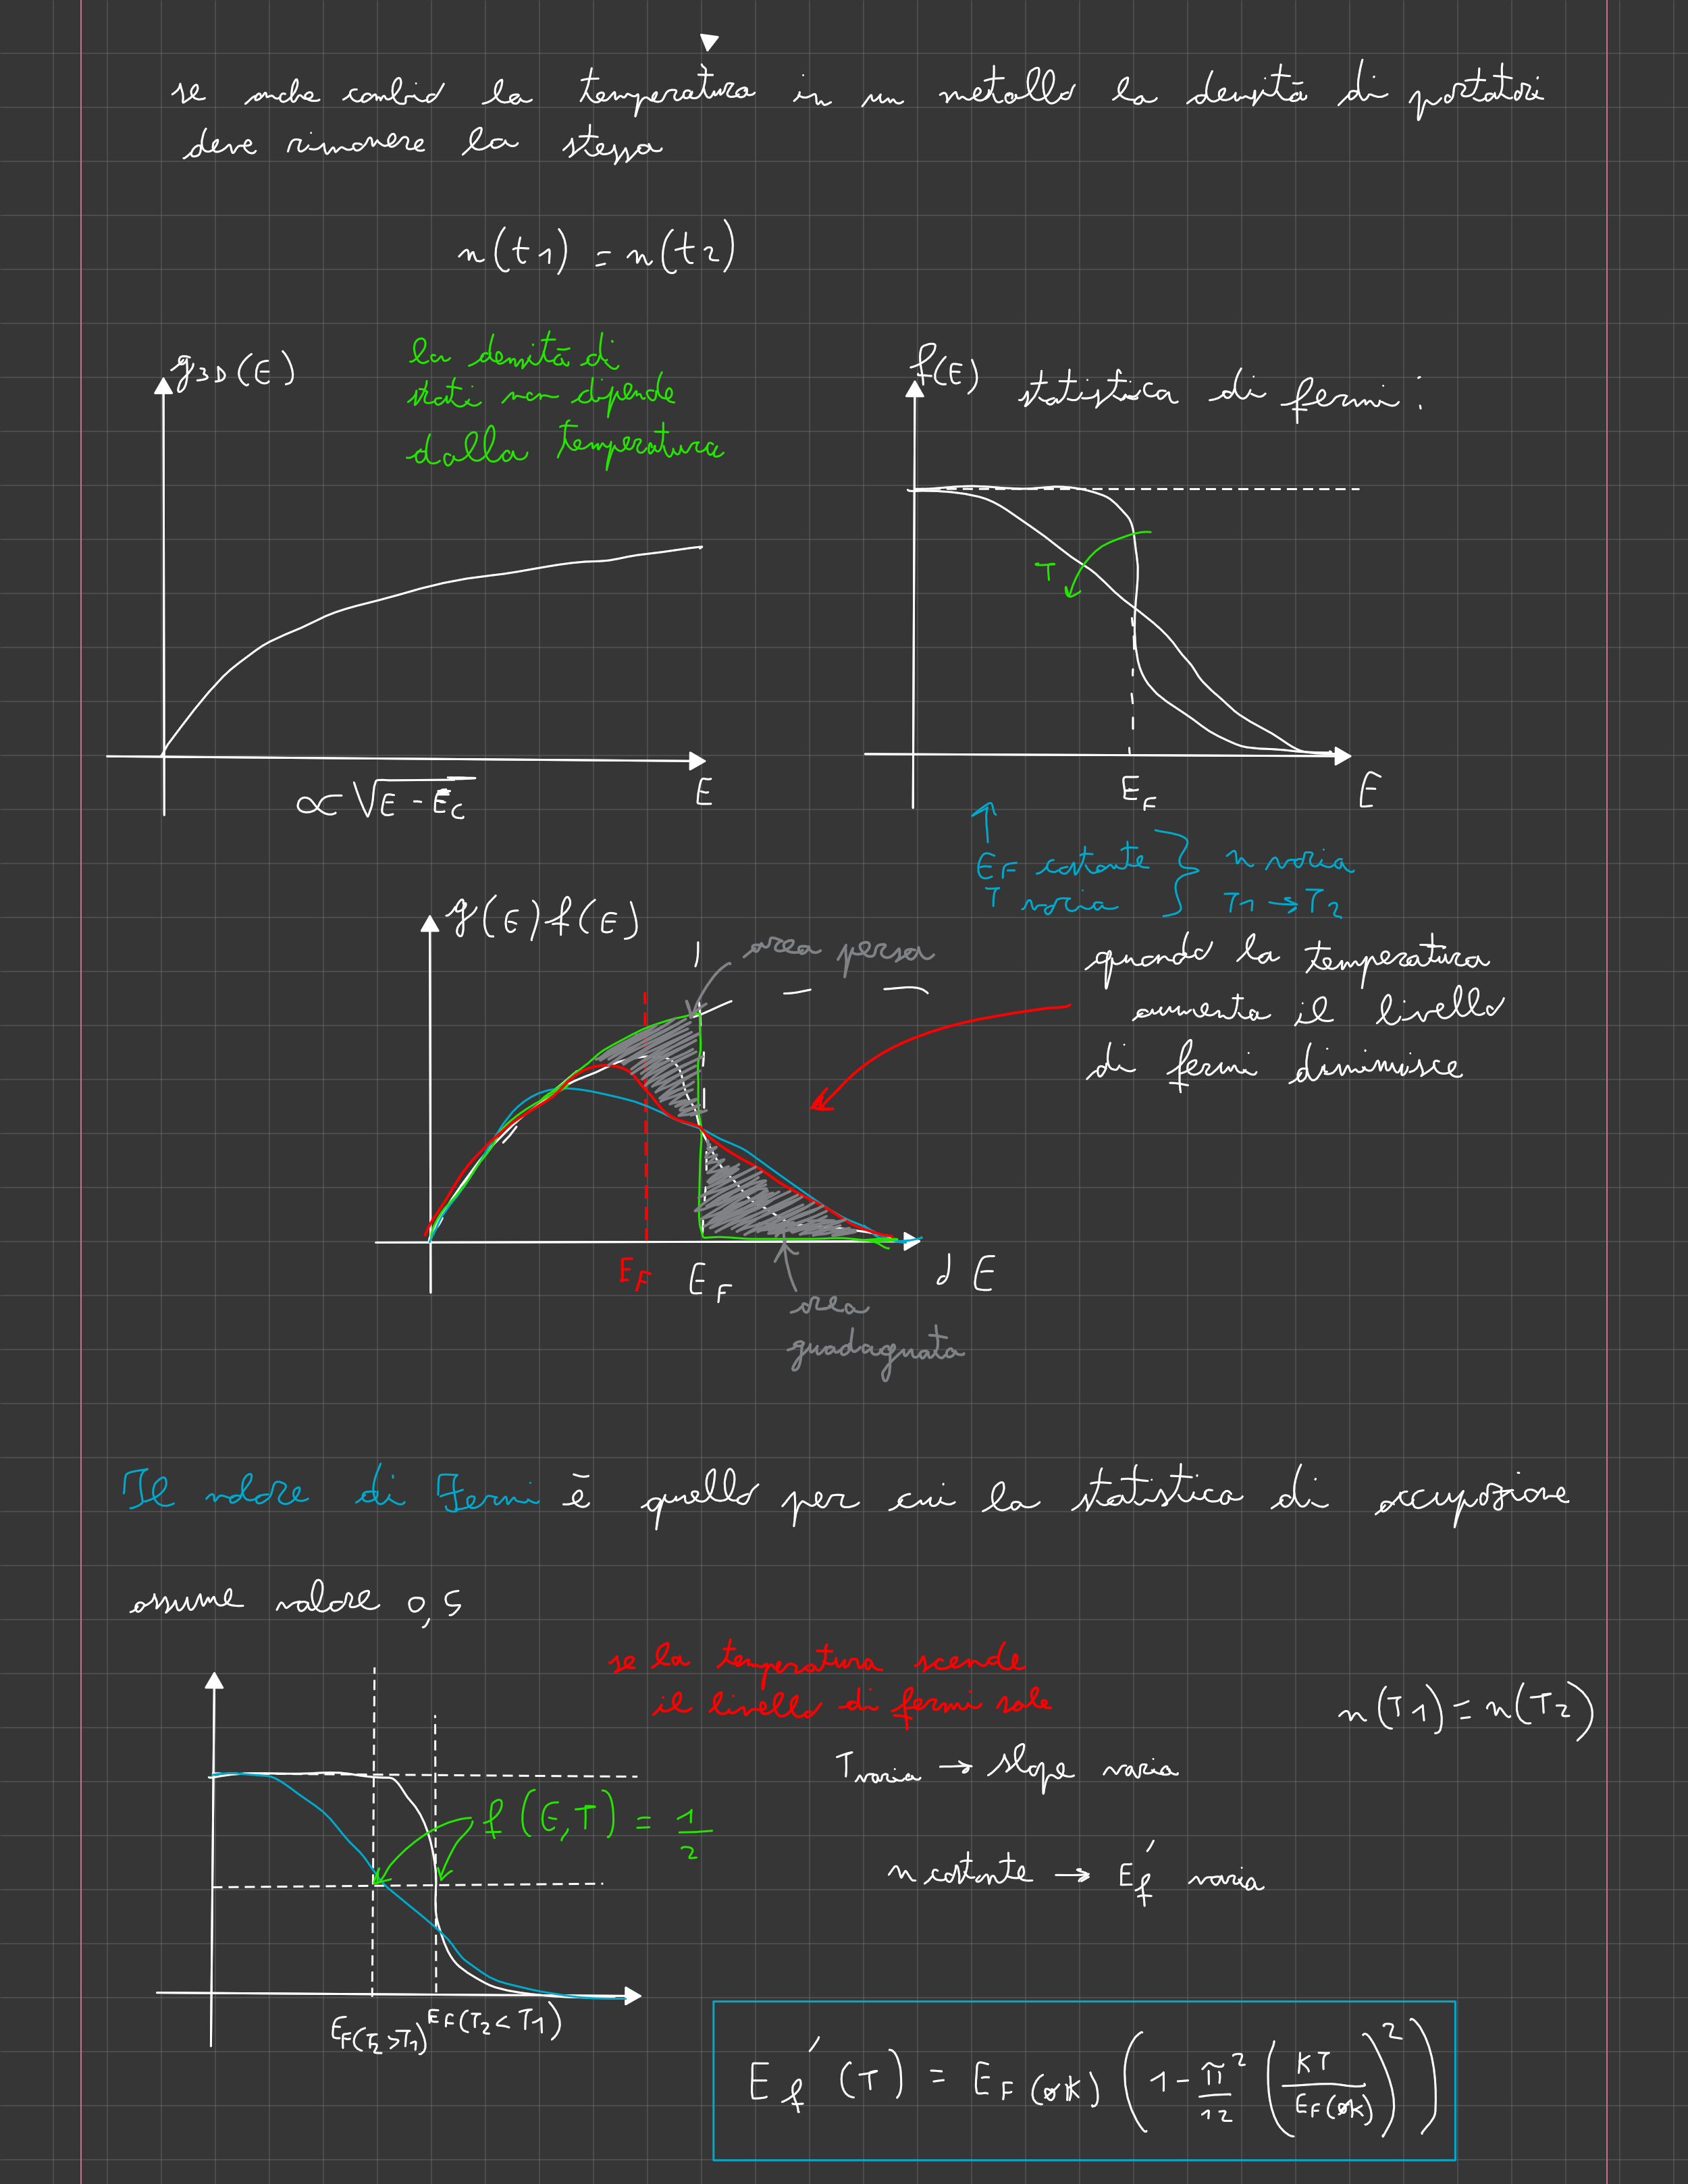 se anche cambio la temperatura in un metallo la densità di portatori
deve rimanere la stessa
n(t1) = n(t2)
g3D(E)
la densità di
stati non dipende
dalla temperatura
E
∝ √E - Ec
f(E)
statistica di fermi :
T
EF
E
EF costante
T varia
n varia
T1 → T2
g(E) f(E)
area persa
quando la temperatura
aumenta il livello
di fermi diminuisce
EF
EF
dE
area
guadagnata
Il valore di Fermi è quello per cui la statistica di occupazione
assume valore 0,5
se la temperatura scende
il livello di fermi sale
n(T1) = n(T2)
T varia → slope varia
f(E,T) = 1/2
n costante → Ef' varia
EF(T2 > T1)
EF(T2 < T1)
Ef'(T) = EF(0K) (1 - π²/12 (KT/EF(0K))²)